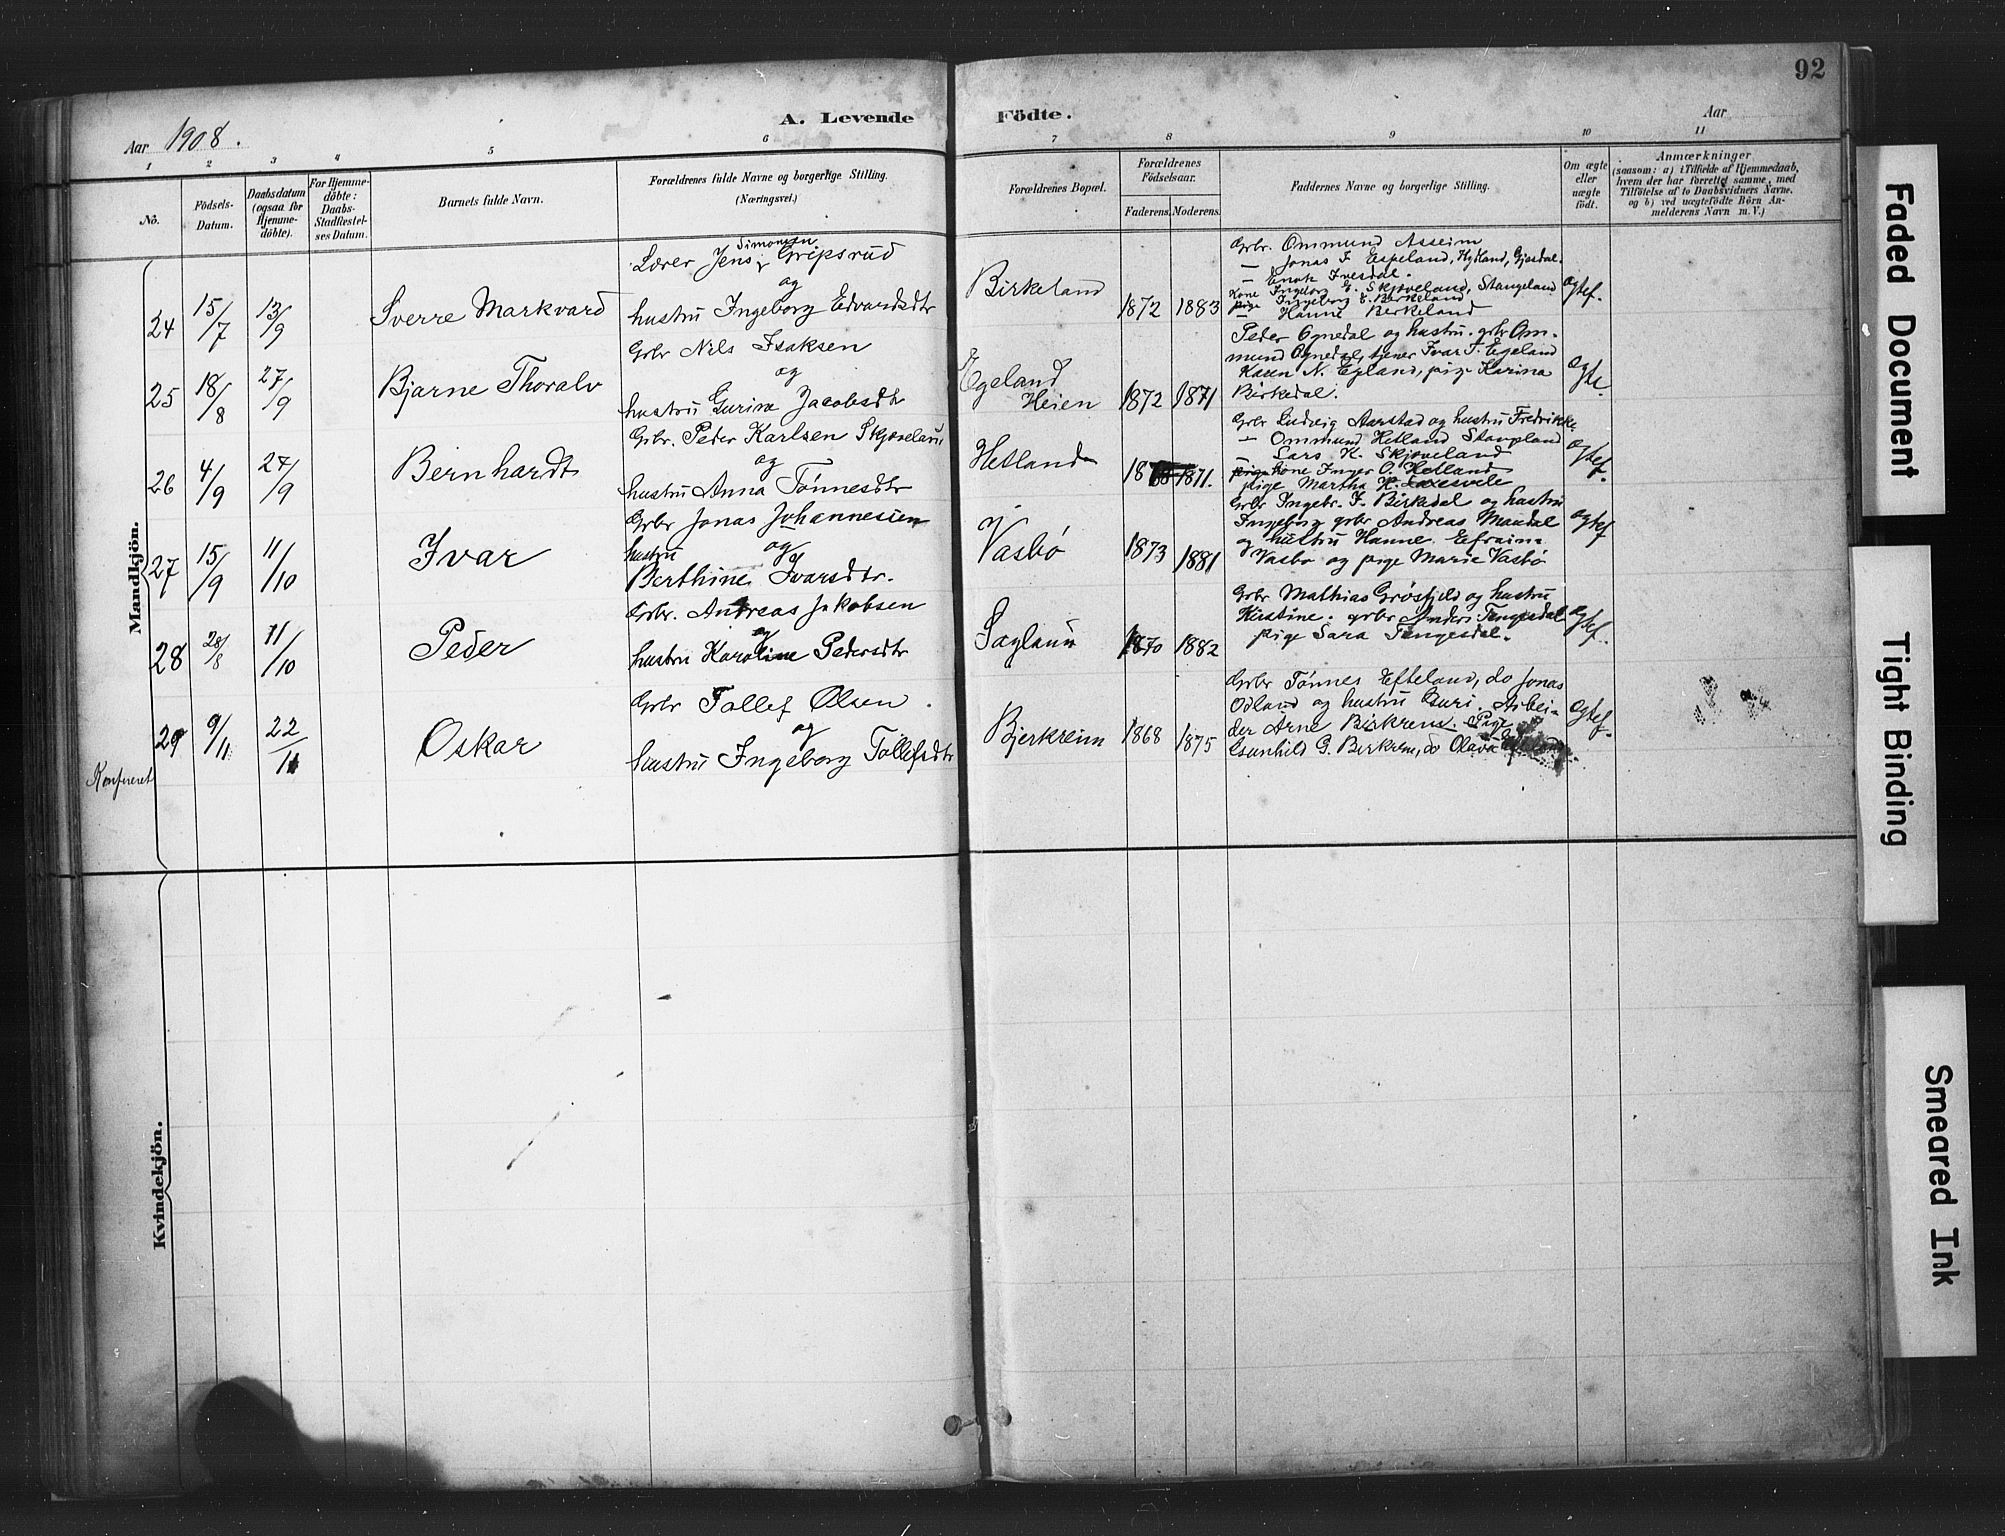 92
Aar 1908.
A. Levende Födte.
Aar
1 2 3 4 5 6 7 8 9 10 11
No.
Födsels-Datum.
Daabsdatum (ogsaa for Hjemme-döbte).
For Hjemme-döbte: Daabs-Stadfæstel-ses Datum.
Barnets fulde Navn.
Forældrenes fulde Navne og borgerlige Stilling.
(Næringsvei.)
Forældrenes Bopæl.
Forældrenes Födselsaar.
Faderens. Moderens.
Faddernes Navne og borgerlige Stilling.
Om ægte eller uægte födt.
Anmærkninger
(saasom: a) i Tilfælde af Hjemmedaab, hvem der har forrettet samme, med Tilföielse af to Daabsvidners Navne. og b) ved uægtefödte Börn An-melderens Navn m. V.)
Mandkjön.
24 15/7 13/9 Sverre Markvard
Lærer Jens Simonsen Gripsrud
og
hustru Ingeborg Edvardsdtr
Birkeland 1872 1883
Grbr. Ommund Asseim
— Jonas J. Espeland, Hytland, Gjesdal.
— Enok Ivesdal.
Kone Ingeborg E. Skjæveland, Stangeland
pige Ingeborg E. Birkeland
— Hanne Birkeland
Ægtef.
25 18/8 27/9 Bjarne Thoralv
Grbr Nils Isaksen
og
hustru Gurine Jacobsdtr
Egeland
Heien 1872 1871
Peder Ognedal og hustru. grbr Om-
mund Ognedal, tjener Ivar T. Egeland
Karen N. Egland, pige Karina
Birkedal.
Ægte.
26 4/9 27/9 Bernhardt
Grbr. Peder Karlsen Skjæveland
og
hustru Anna Tönnesdtr
Hetland 1871.
Grbr Ludvig Aarstad og hustru Fredrikke.
— Ommund Hetland Stangland
— Lars K. Skjæveland
kone Inger O. Hetland
pige Martha H.
Ægtef.
27 15/9 11/10 Ivar
Grbr Jonas Johannesen
og
hustru
Berthine Ivarsdtr.
Vasbö 1873 1881
Grbr Ingebr. J. Birkedal og hustru
Ingeborg grbr Andreas Maudal
og hustru Hanne. Efraim
Vasbo og pige Marie Vasbö
Ægtef
28 28/8 11/10 Peder
Grbr. Andreas Jakobsen
og
hustru Karoline Pedersdtr
Sagland 1870 1882
Grbr Mathias Grösfjeld og hustru
Kirstine. grbr Anders Tengesdal
pige Sara Tengesdal.
Ægtef.
29 9/11 22/11 Oskar
Grbr Tollef Olsen
og
hustru Ingeborg Tollefsdtr
Bjerkreim 1868 1875
Grbr Tönnes Efteland, do Jonas
Odland og hustru Guri. Arbei-
der Arne Birkrem. Pige
Gunhild G. Birkrem, do Olava
Ægtef.
Konfereret
Kvindekjön.
Faded Document
Tight Binding
Smeared Ink